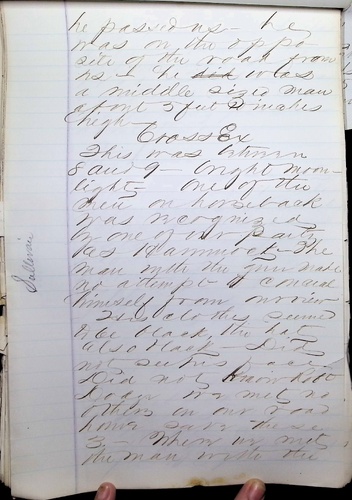 he passed us - he
was on the oppo
site of the road from
us - he was
a middle sized man
about 5 feet 8 inches
high -
Cross Ex
This was between
8 and 9 - bright moon-
light - one of the
men on horseback
was recognized
by one of our party
as Hammock - The
man with the gun made
no attempt to conceal
himself from our view
His clothes seemed
to be black, the hat
also black - Did
not see his face
Did not know
we met no
others on our road
home save these
3 - When we met
the man with the